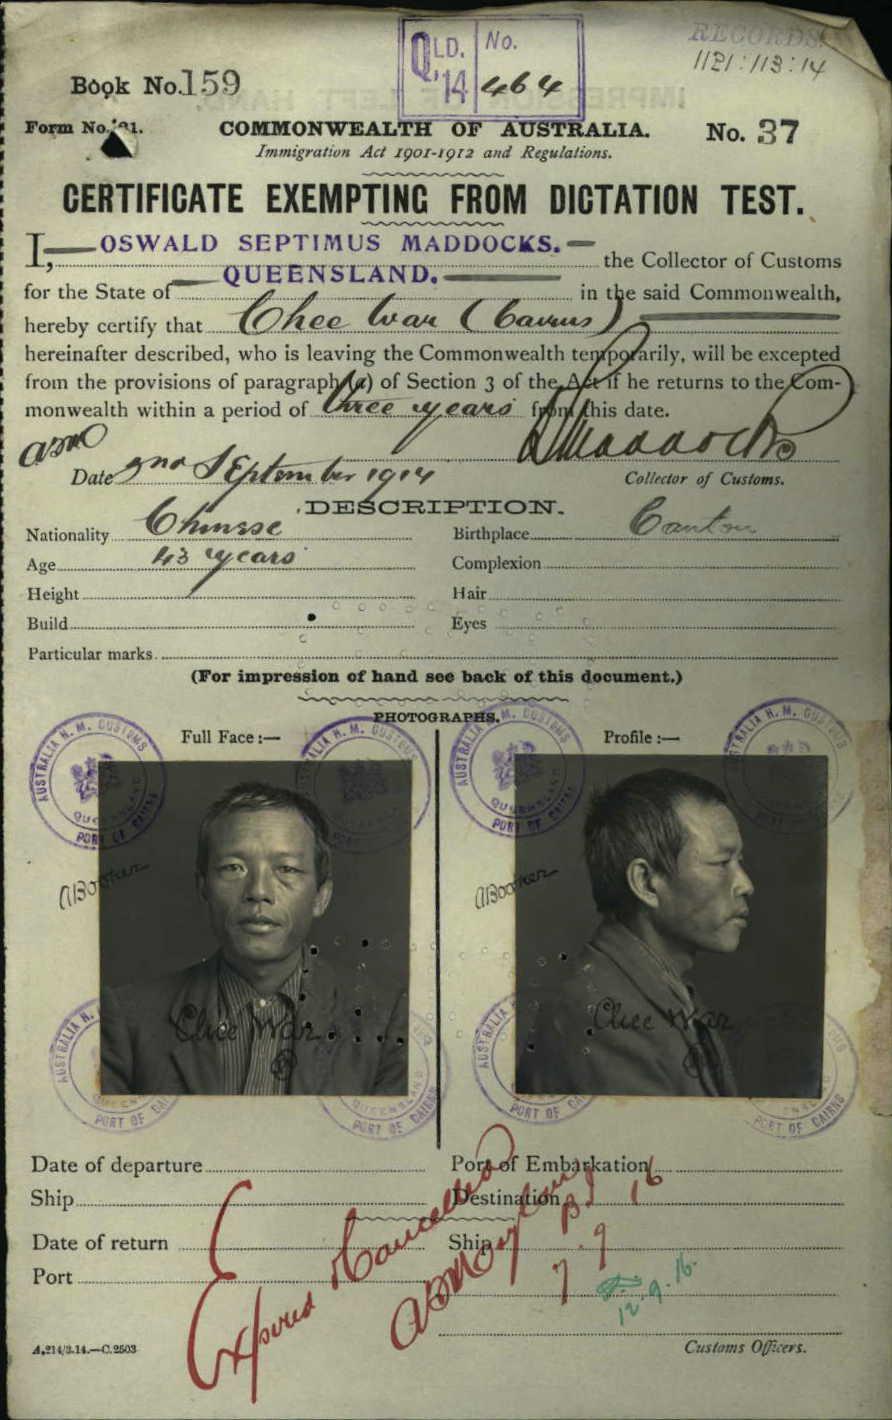 RECORDS
1121:113:14
QLD. No.
'14 464
Book No. 159
Form No. 21.
COMMONWEALTH OF AUSTRALIA.
No. 37
Immigration Act 1901-1912 and Regulations.
CERTIFICATE EXEMPTING FROM DICTATION TEST.
I, OSWALD SEPTIMUS MADDOCKS. the Collector of Customs
for the State of QUEENSLAND. in the said Commonwealth,
hereby certify that Chee War (Cairns)
hereinafter described, who is leaving the Commonwealth temporarily, will be excepted
from the provisions of paragraph (a) of Section 3 of the Act if he returns to the Com-
monwealth within a period of three years from this date.
Maddocks
Date 2nd September 1914
Collector of Customs.
DESCRIPTION.
Nationality Chinese Birthplace Canton
Age 43 years Complexion
Height Hair
Build Eyes
Particular marks
(For impression of hand see back of this document.)
PHOTOGRAPHS.
Full Face :— Profile :—
AUSTRALIA H. M. CUSTOMS QUEENSLAND PORT OF CAIRNS
AUSTRALIA H. M. CUSTOMS
AUSTRALIA H. M. CUSTOMS QUEENSLAND PORT OF CAIRNS
AUSTRALIA H. M. CUSTOMS
ABooker ABooker
Chee War Chee War
AUSTRALIA H. QUEENSLAND PORT OF CAI
QUEENSLAND PORT OF CAIRNS
AUSTRALIA PORT OF
PORT OF CAIRNS
Date of departure Port of Embarkation
Ship Destination
Date of return Ship
Port
Expired & Cancelled
7.9 16
12.9.16.
A.214/3.14.—C.2503
Customs Officers.